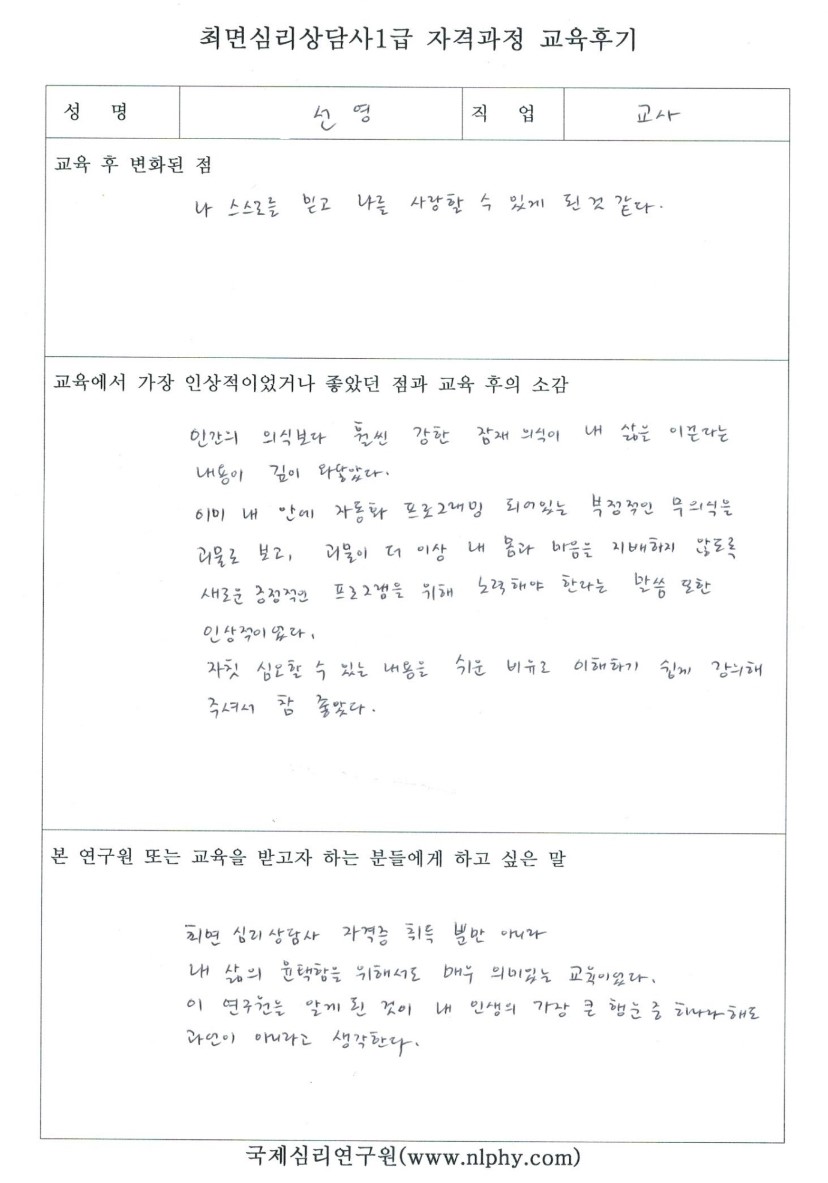 최면심리상담사1급 자격과정 교육후기
성 명 선영 직 업 교사
교육 후 변화된 점
나 스스로를 믿고 나를 사랑할 수 있게 된 것 같다.
교육에서 가장 인상적이었거나 좋았던 점과 교육 후의 소감
인간의 의식보다 훨씬 강한 잠재 의식이 내 삶을 이끈다는
내용이 깊이 와닿았다.
이미 내 안에 자동화 프로그래밍 되어있는 부정적인 무의식을
괴물로 보고, 괴물이 더 이상 내 몸과 마음을 지배하지 않도록
새로운 긍정적인 프로그램을 위해 노력해야 한다는 말씀 또한
인상적이었다.
자칫 심오할 수 있는 내용을 쉬운 비유로 이해하기 쉽게 강의해
주셔서 참 좋았다.
본 연구원 또는 교육을 받고자 하는 분들에게 하고 싶은 말
최면 심리상담사 자격증 취득 뿐만 아니라
내 삶의 윤택함을 위해서도 매우 의미있는 교육이었다.
이 연구원을 알게 된 것이 내 인생의 가장 큰 행운 중 하나라 해도
과언이 아니라고 생각한다.
국제심리연구원(www.nlphy.com)